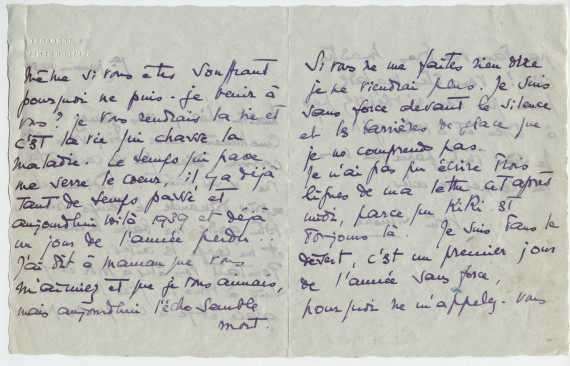 même si vous êtes souffrant
pourquoi ne puis-je venir à
vous? je vous rendrais la vie et
c'est la vie qui chasse la
maladie. Le temps qui passe
me serre le coeur, il y a déjà
tant de temps passé et
aujourd'hui voilà 1939 et déjà
un jour de l'année perdu...
J'ai dit à maman que vous
m'aimiez et que je vous aimais,
mais aujourd'hui l'écho semble
mort.
Si vous ne me faites rien dire
je ne viendrai plus. Je suis
sans force devant le silence
et les barrières de glace que
je ne comprends pas.
Je n'ai pas pu écrire trois
lignes de ma lettre cet après
midi, parce que Kiki est
toujours là. Je suis dans le
désert, c'est un premier jour
de l'année sans force,
pourquoi ne m'appelez-vous